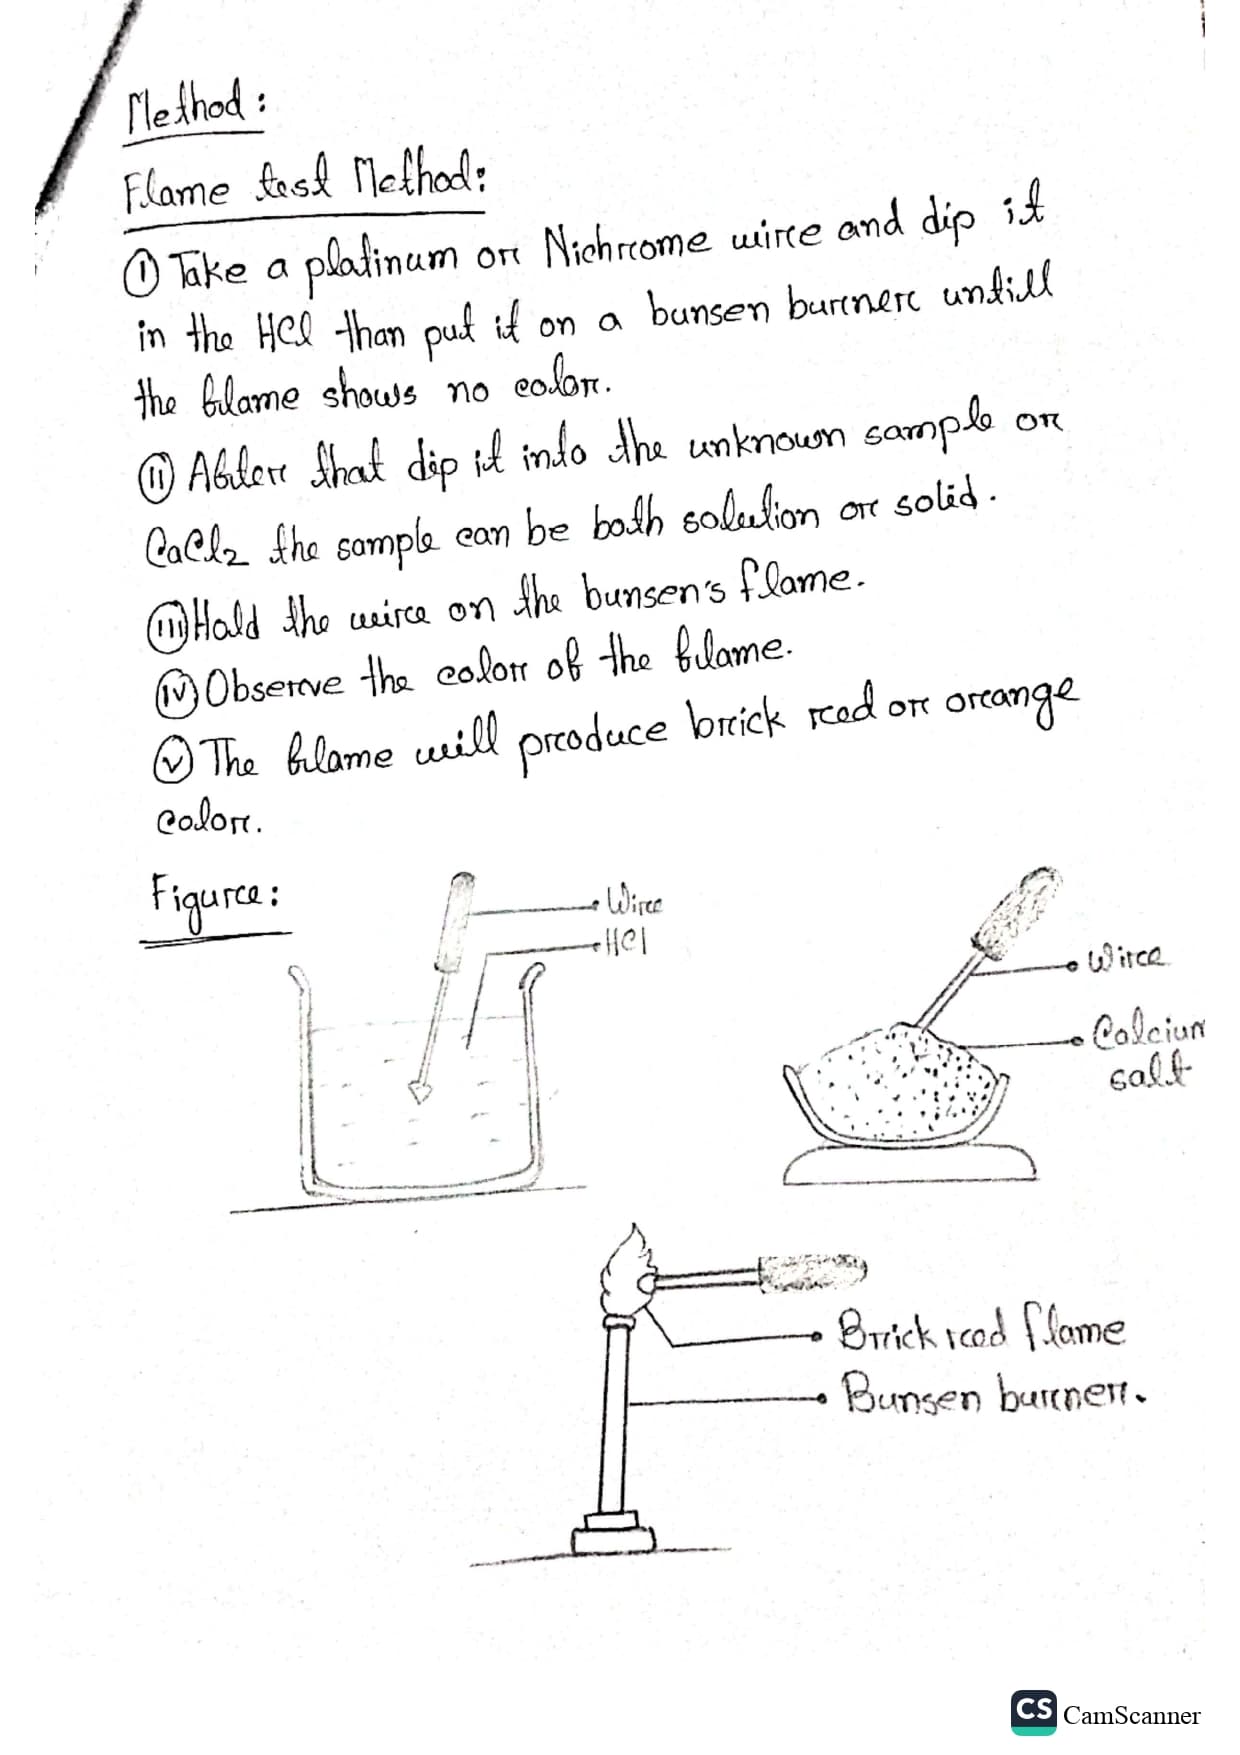 Method:
Flame test Method:
(i) Take a platinum or Nichrome wire and dip it
in the HCl than put it on a bunsen burner untill
the flame shows no color.
(ii) After that dip it into the unknown sample or
CaCl2 the sample can be both solution or solid.
(iii) Hold the wire on the bunsen's flame.
(iv) Observe the color of the flame.
(v) The flame will produce brick red or orange
color.
Figure:
Wire
HCl
Wire
Calcium
salt
Brick red flame
Bunsen burner.
CS CamScanner